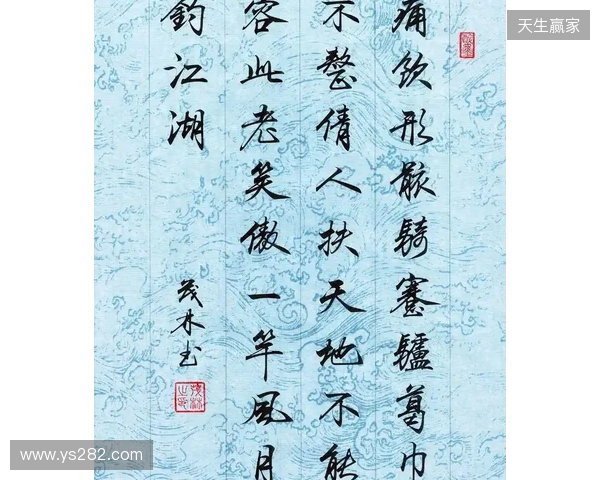 痛饮形骸騎蹇驢葛巾
不整倩人扶天地不能
容此老笑傲一竿風月
釣江湖
茂林书
天生赢家
www.ys282.com